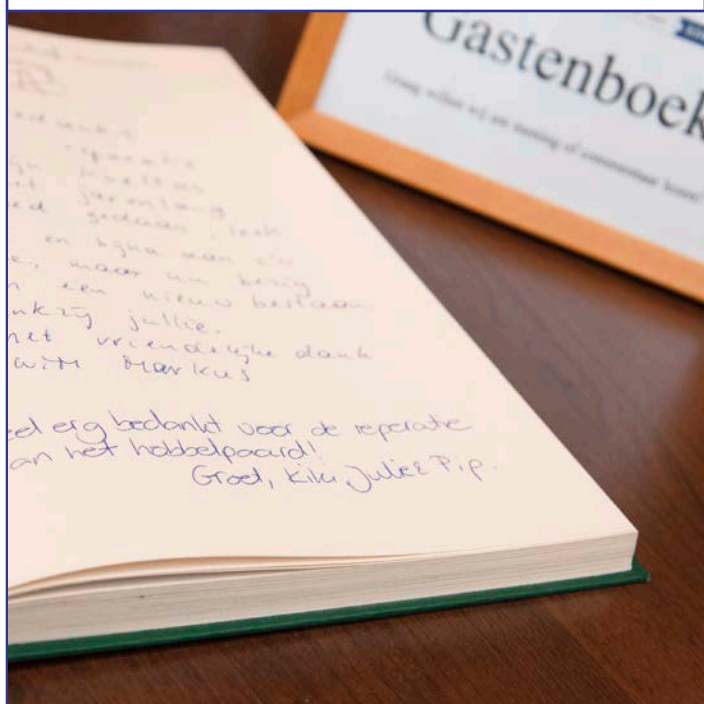 Gastenboek
Graag willen wij uw mening of commentaar horen!
reparatie
jarenlang
gedaan, leek
en bijna aan z'n
maar nu bezig
een nieuw bestaan
jullie.
met vriendelijke dank
Wim Markus
eel erg bedankt voor de reperatie
an het hobbelpaard!
Groet, Kiki Julie & Pip.